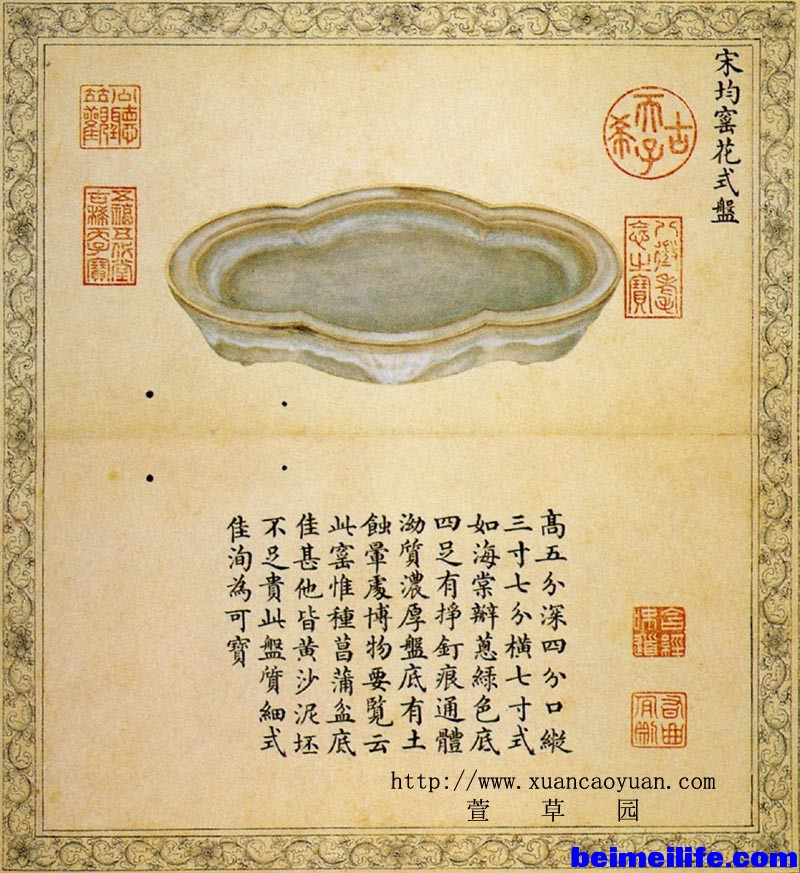 宋均窰花式盤
古希天子
八徵耄念之寶
五福五代堂古稀天子寶
高五分深四分口縱
三寸七分橫七寸式
如海棠瓣蔥綠色底
四足有掙釘痕通體
泑質濃厚盤底有土
蝕暈處博物要覽云
此窰惟種菖蒲盆底
佳甚他皆黄沙泥坯
不足貴此盤質細式
佳洵為可寶
http://www.xuancaoyuan.com
萱草园
beimeilife.com